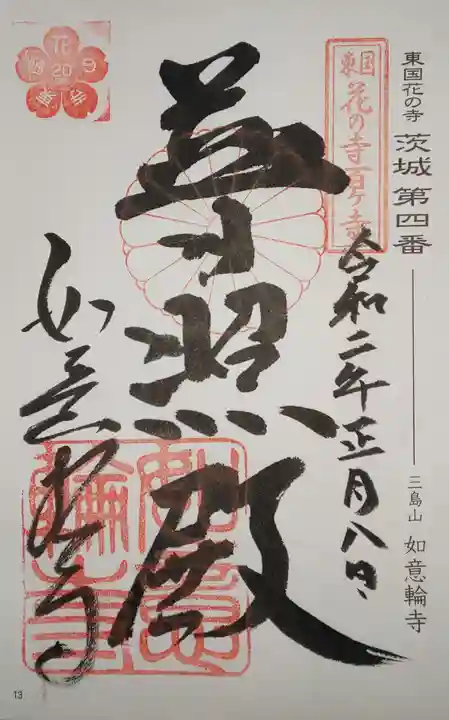 東国花の寺 茨城 第四番
三島山 如意輪寺
東国
花の寺百ヶ寺
令和二年正月八日
照殿
如意輪寺
如意輪寺
花
20
13